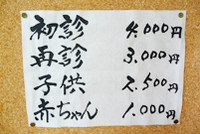 初診 4.000円
再診 3.000円
子供 2.500円
赤ちゃん 1.000円